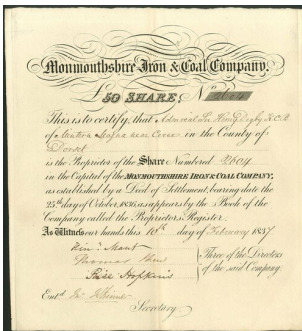 Monmouthshire Iron & Coal Company.
£50 SHARE, No. 2604
This is to certify, that Admiral Sir Henry Digby K.C.B.
of Minterne Magna near Cerne in the County of
Dorset
is the Proprietor of the Share Numbered 2604
in the Capital of the MONMOUTHSHIRE IRON & COAL COMPANY,
as established by a Deed of Settlement, bearing date the
25th day of October, 1836, as appears by the Book of the
Company called the Proprietors Register.
As Witness our hands this 10th day of February 1837
Thomas
Hopkins
Three of the Directors
of the said Company.
Entd.
Secretary.